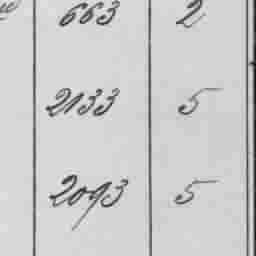 663 2
2133 5
2093 5